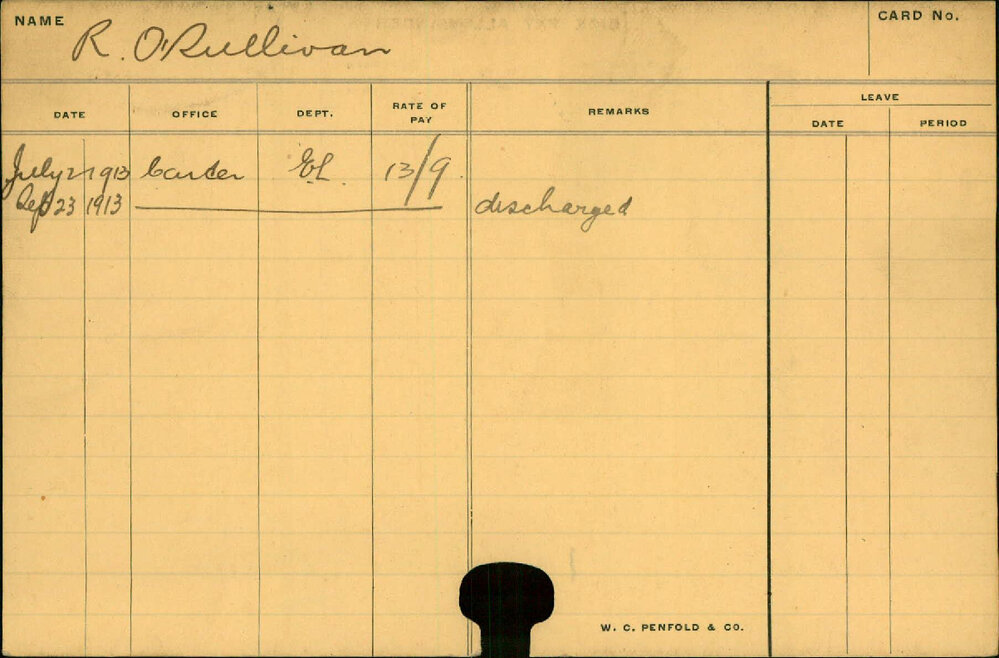 NAME R. O'Sullivan CARD No.
DATE OFFICE DEPT. RATE OF PAY REMARKS LEAVE
DATE PERIOD
July 2 1913 Carter E.L. 13/9
Sep 23 1913 discharged
W. C. PENFOLD & CO.